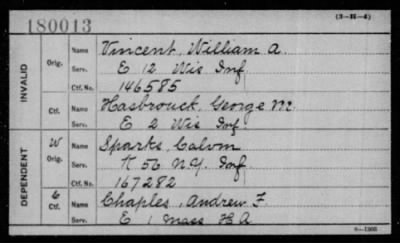 180013
(3-H-4)
INVALID
Orig.
Name Vincent, William A.
Serv. E 12 Wis Inf.
Ctf. No. 146585
Ctf.
Name Hasbrouck, George M.
Serv. E 2 Wis Inf.
DEPENDENT
W
Orig.
Name Sparks, Calvin
Serv. K 56 N.Y. Inf
Ctf. No. 167282
Ctf.
Name Chaples, Andrew F.
Serv. E 1 Mass H A